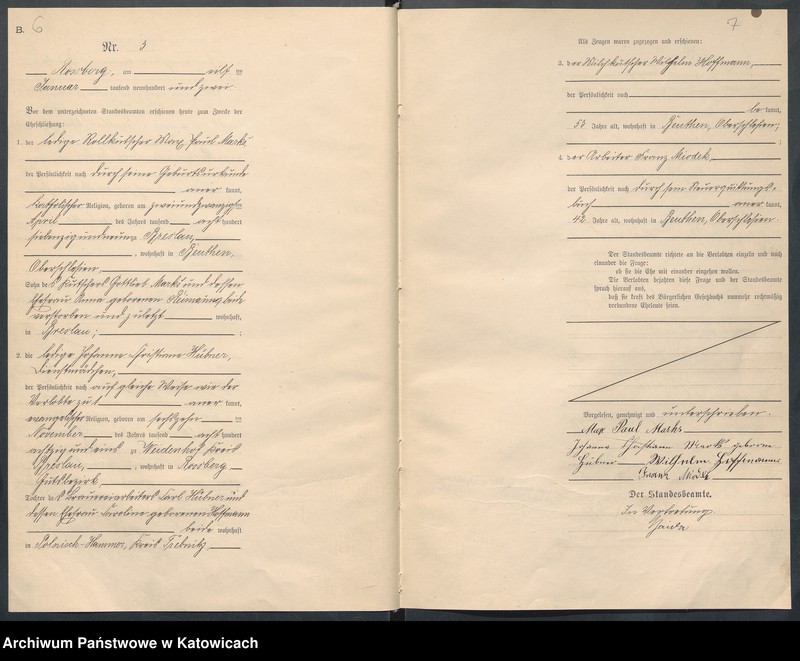 B. 6
Nr. 3
Rossberg, am elf ten
Januar tausend neunhundert und zwei
Vor dem unterzeichneten Standesbeamten erschienen heute zum Zwecke der
Eheschließung:
1. der ledige Rollkutscher Max Paul Marks
der Persönlichkeit nach durch seine Geburtsurkunde
aner kannt,
katholischer Religion, geboren am zweiundzwanzigsten
April des Jahres tausend acht hundert
siebenzig und neun zu Breslau,
, wohnhaft in Beuthen,
Oberschlesien,
Sohn des Kutschers Gottlieb Marks und dessen
Ehefrau Anna geborenen beide
verstorben und zuletzt wohnhaft,
in Breslau;
2. die ledige Johanna Christiane Hübner,
Dienstmädchen,
der Persönlichkeit nach auf gleiche Weise wie der
Verlobte zu 1 aner kannt,
evangelischer Religion, geboren am sechszehn ten
November des Jahres tausend acht hundert
achtzig und eins zu Weidenhof Kreis
Breslau, , wohnhaft in Rossberg
Gutsbezirk
Tochter des Brauereiarbeiters Carl Hübner und
dessen Ehefrau Caroline geborenen Hoffmann
beide wohnhaft
in Polnisch-Hammer, Kreis Trebnitz
7
Als Zeugen waren zugezogen und erschienen:
3. der Milchkutscher Wilhelm Hoffmann,
der Persönlichkeit nach
be kannt,
53 Jahre alt, wohnhaft in Beuthen, Oberschlesien;
4. der Arbeiter Franz Miodek,
der Persönlichkeit nach durch sein Steuerquittungs-
buch aner kannt,
42 Jahre alt, wohnhaft in Beuthen, Oberschlesien.
Der Standesbeamte richtete an die Verlobten einzeln und nach
einander die Frage:
ob sie die Ehe mit einander eingehen wollen.
Die Verlobten bejahten diese Frage und der Standesbeamte
sprach hierauf aus,
daß sie kraft des Bürgerlichen Gesetzbuchs nunmehr rechtmäßig
verbundene Eheleute seien.
Vorgelesen, genehmigt und unterschrieben.
Max Paul Marks
Johanna Christiane Marks geborene
Hübner Wilhelm Hoffmann
Franz Miodek
Der Standesbeamte.
In Vertretung.
Archiwum Państwowe w Katowicach